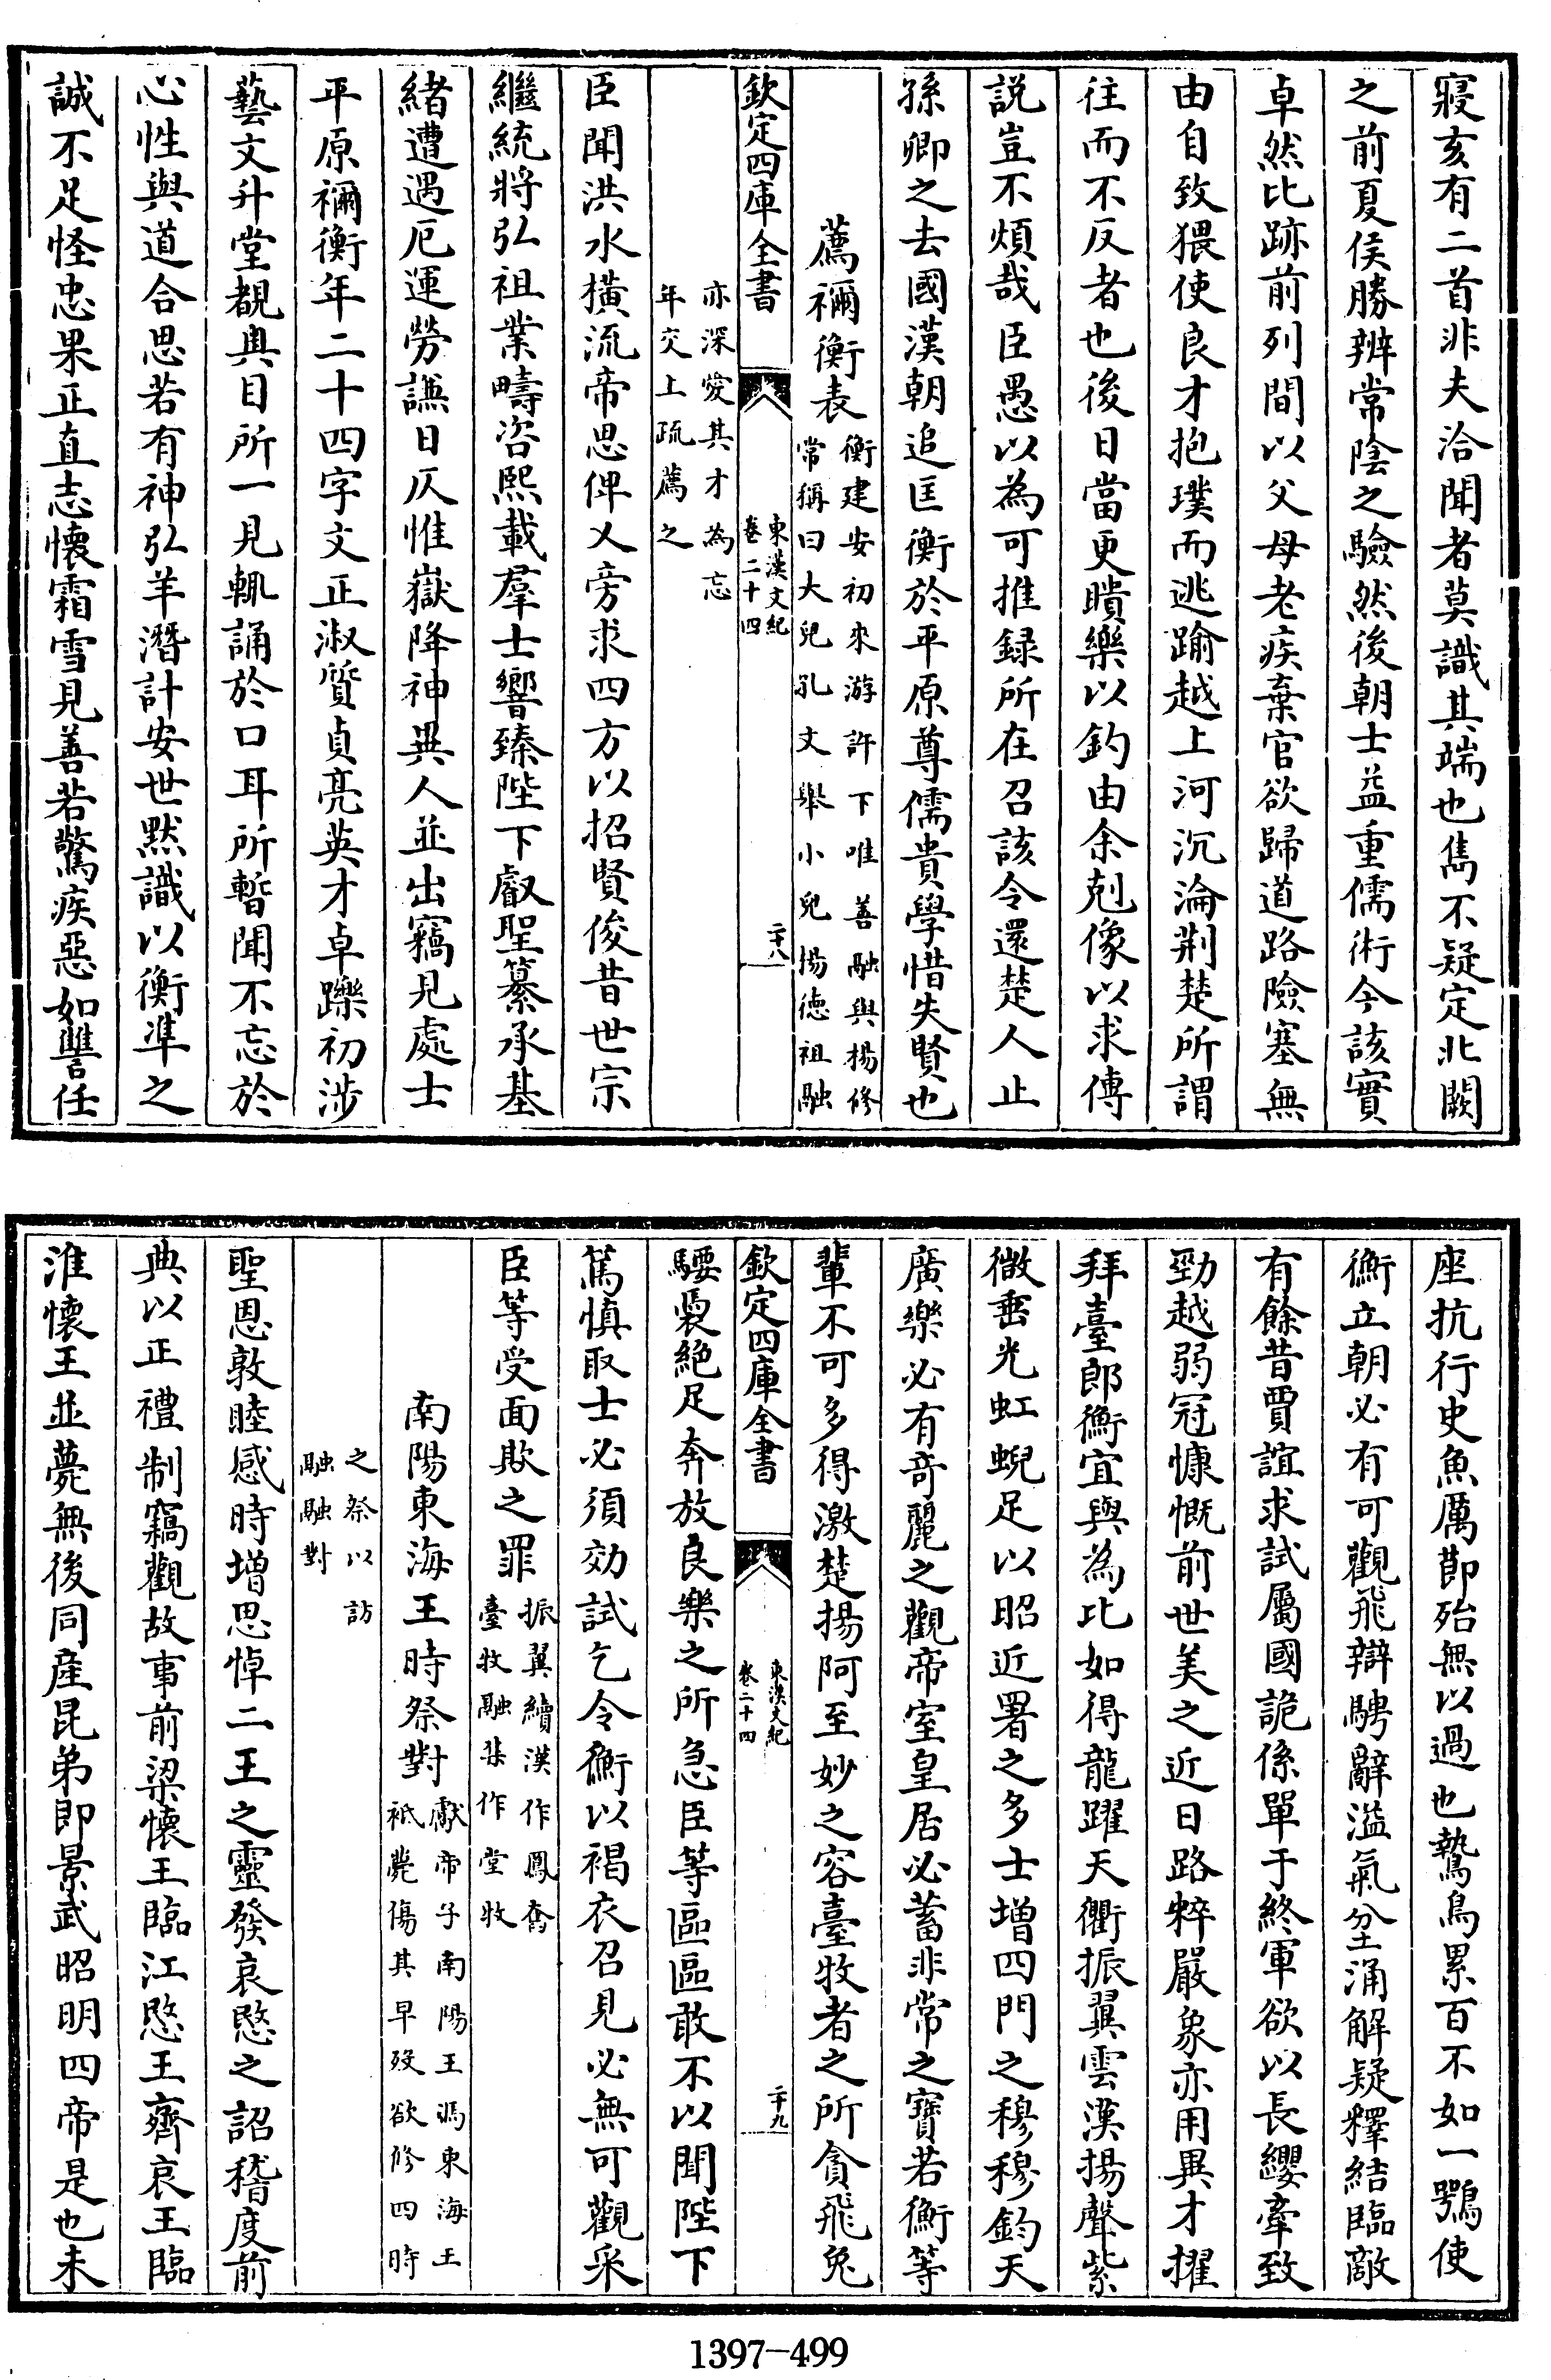 寢亥有二首非夫洽聞者莫識其端也雋不疑定北闕
之前夏侯勝辨常陰之驗然後朝士益重儒術今該實
卓然比跡前列間以父母老疾棄官欲歸道路險塞無
由自致猥使良才抱璞而逃踰越上河沉淪荆楚所謂
往而不反者也後日當更饋樂以釣由余剋像以求傅
説豈不煩哉臣愚以為可推録所在召該令還楚人止
孫卿之去國漢朝追匡衡於平原尊儒貴學惜失賢也
薦禰衡表
衡建安初來游許下唯善融與楊修
常稱曰大兒孔文舉小兒楊德祖融
欽定四庫全書
東漢文紀
卷二十四
二十八
亦深愛其才為忘
年交上疏薦之
臣聞洪水橫流帝思俾乂旁求四方以招賢俊昔世宗
繼統將弘祖業疇咨熙載羣士響臻陛下叡聖纂承基
緒遭遇厄運勞謙日仄惟嶽降神異人並出竊見處士
平原禰衡年二十四字文正淑質貞亮英才卓躒初涉
藝文升堂覩奥目所一見輒誦於口耳所暫聞不忘於
心性與道合思若有神弘羊潛計安世默識以衡準之
誠不足怪忠果正直志懷霜雪見善若驚疾惡如讐任
座抗行史魚厲節殆無以過也鷙鳥累百不如一鶚使
衡立朝必有可觀飛辯騁辭溢氣坌涌解疑釋結臨敵
有餘昔賈誼求試屬國詭係單于終軍欲以長纓牽致
勁越弱冠慷慨前世美之近日路粹嚴象亦用異才擢
拜臺郎衡宜與為比如得龍躍天衢振翼雲漢揚聲紫
微垂光虹蜺足以昭近署之多士增四門之穆穆鈞天
廣樂必有竒麗之觀帝室皇居必蓄非常之寶若衡等
輩不可多得激楚揚阿至妙之容臺牧者之所貪飛兔
欽定四庫全書
東漢文紀
卷二十四
二十九
騕褭絶足奔放良樂之所急臣等區區敢不以聞陛下
篤慎取士必須効試乞令衡以褐衣召見必無可觀采
臣等受面欺之罪
振翼續漢作鳳奮
臺牧融集作堂牧
南陽東海王時祭對
獻帝子南陽王馮東海王
祗薨傷其早殁欲修四時
之祭以訪
融融對
聖恩敦睦感時增思悼二王之靈發哀愍之詔稽度前
典以正禮制竊觀故事前梁懷王臨江愍王齊哀王臨
淮懷王並薨無後同産昆弟即景武昭明四帝是也未
1397-499